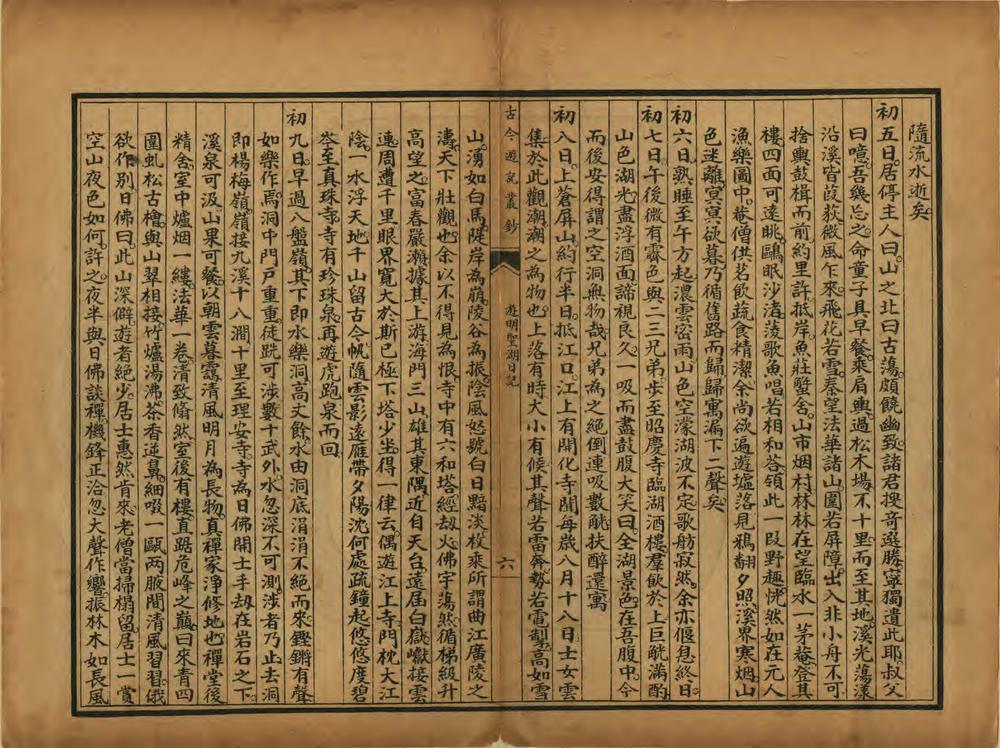 隨流水逝矣
初五日居停主人曰山之北曰古蕩頗饒幽致諸君搜奇選勝寧獨遺此耶叔父
曰噫吾幾忘之命童子具早餐乘肩輿過松木場不十里而至其地溪光蕩漾
沿溪皆葭荻微風乍來飛花若雪秦望法華諸山圍若屏障出入非小舟不可
捨輿鼓楫而前約里許抵岸魚莊蟹舍山市烟村林林在望臨水一茅菴登其
樓四面可遠眺鷗眠沙渚菱歌魚唱若相和荅領此一段野趣恍然如在元人
漁樂圖中菴僧供茗飲蔬食精潔余尚欲遍遊墟落見鴉翻夕照溪界寒烟山
色迷離冥冥欲暮乃循舊路而歸歸寓漏下二聲矣
初六日熟睡至午方起濃雲密雨山色空濛湖波不定歌舫寂然余亦偃息終日
初七日午後微有霽色與二三兄弟步至昭慶寺臨湖酒樓羣飲於上巨觥滿酌
山色湖光盡浮酒面諦視良久一吸而盡鼓腹大笑曰全湖景色在吾腹中今
而後安得謂之空洞無物哉兄弟為之絕倒連吸數觥扶醉還寓
初八日上蒼屏山約行半日抵江口江上有開化寺聞每歲八月十八日士女雲
集於此觀潮潮之為物也上落有時大小有候其聲若雷奔勢若電掣高如雪
古今遊記叢鈔
遊明聖湖日記
六
山湧如白馬隄岸為崩陵谷為振陰風怒號白日黯淡枚乘所謂曲江廣陵之
濤天下壯觀也余以不得見為恨寺中有六和塔經劫火佛宇蕩然循梯級升
高望之富春嚴瀨據其上游海門三山雄其東隅近自天台遠屆白嶽巘接雲
連周遭千里眼界寬大於斯已極下塔少坐得一律云偶遊江上寺門枕大江
陰一水浮天地千山留古今帆隨雲影遠雁帶夕陽沈何處疏鐘起悠悠度碧
岑至真珠寺寺有珍珠泉再遊虎跑泉而回
初九日早過八盤嶺其下即水樂洞高丈餘水由洞底涓涓不絕而來鏗鏘有聲
如樂作焉洞中門戶重重徒跣可涉數十武外水忽深不可測涉者乃止去洞
即楊梅嶺嶺接九溪十八澗十里至理安寺寺為日佛開士手劫在岩石之下
溪泉可汲山果可餐以朝雲暮靄清風明月為長物真禪家淨修地也禪堂後
精舍室中爐烟一縷法華一卷清致翛然室後有樓直踞危峰之巔曰來青四
圍虬松古檜與山翠相接竹爐湯沸茶香逆鼻細啜一甌兩腋間清風習習俄
欲作別日佛曰此山深僻遊者絕少居士惠然肯來老僧當掃榻留居士一賞
空山夜色如何許之夜半與日佛談禪機鋒正洽忽大聲作響振林木如長風